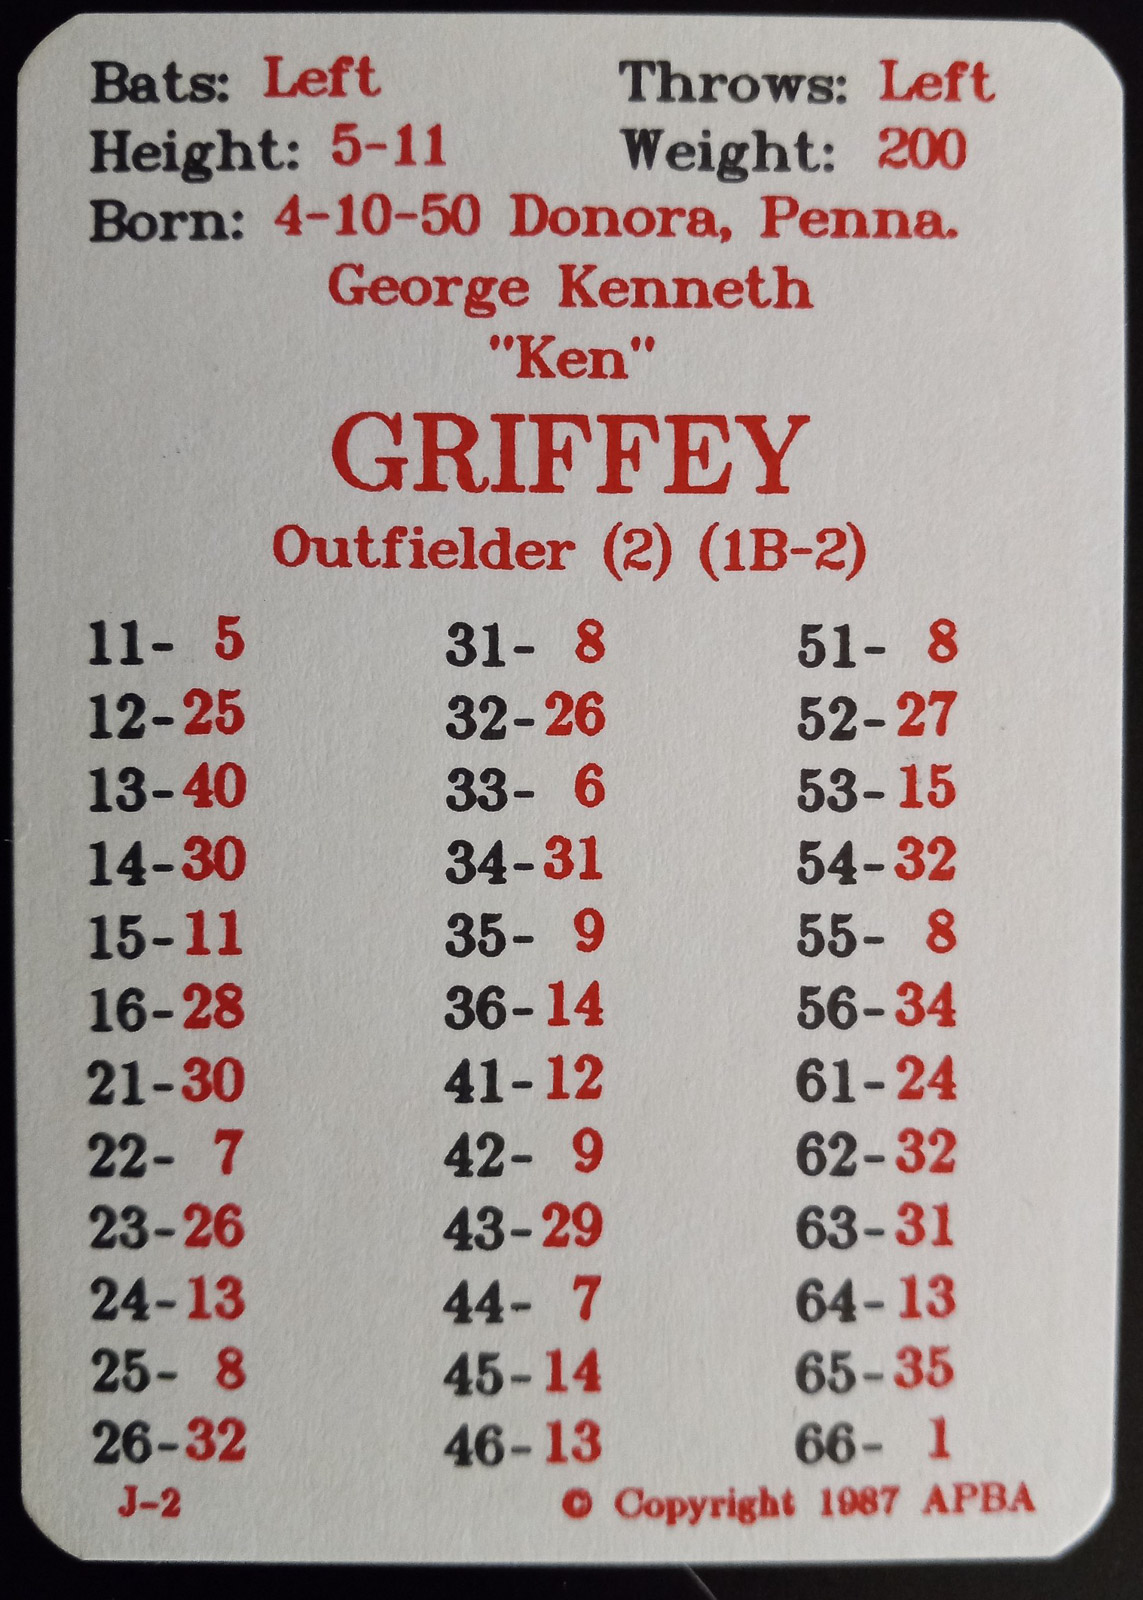 Bats: Left Throws: Left
Height: 5-11 Weight: 200
Born: 4-10-50 Donora, Penna.
George Kenneth
"Ken"
GRIFFEY
Outfielder (2) (1B-2)
11- 5 31- 8 51- 8
12-25 32-26 52-27
13-40 33- 6 53-15
14-30 34-31 54-32
15-11 35- 9 55- 8
16-28 36-14 56-34
21-30 41-12 61-24
22- 7 42- 9 62-32
23-26 43-29 63-31
24-13 44- 7 64-13
25- 8 45-14 65-35
26-32 46-13 66- 1
J-2 © Copyright 1987 APBA